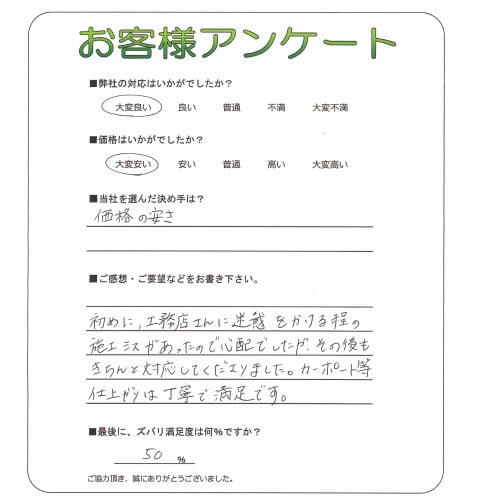 お客様アンケート
■弊社の対応はいかがでしたか？
大変良い 良い 普通 不満 大変不満
■価格はいかがでしたか？
大変安い 安い 普通 高い 大変高い
■当社を選んだ決め手は？
価格の安さ
■ご感想・ご要望などをお書き下さい。
初めに,工務店さんに迷惑をかける程の
施工ミスがあったので心配でしたが、その後も
きちんと対応してくださりました。カーポート等
仕上がりは丁寧で満足です。
■最後に、ズバリ満足度は何％ですか？
50 ％
ご協力頂き、誠にありがとうございました。